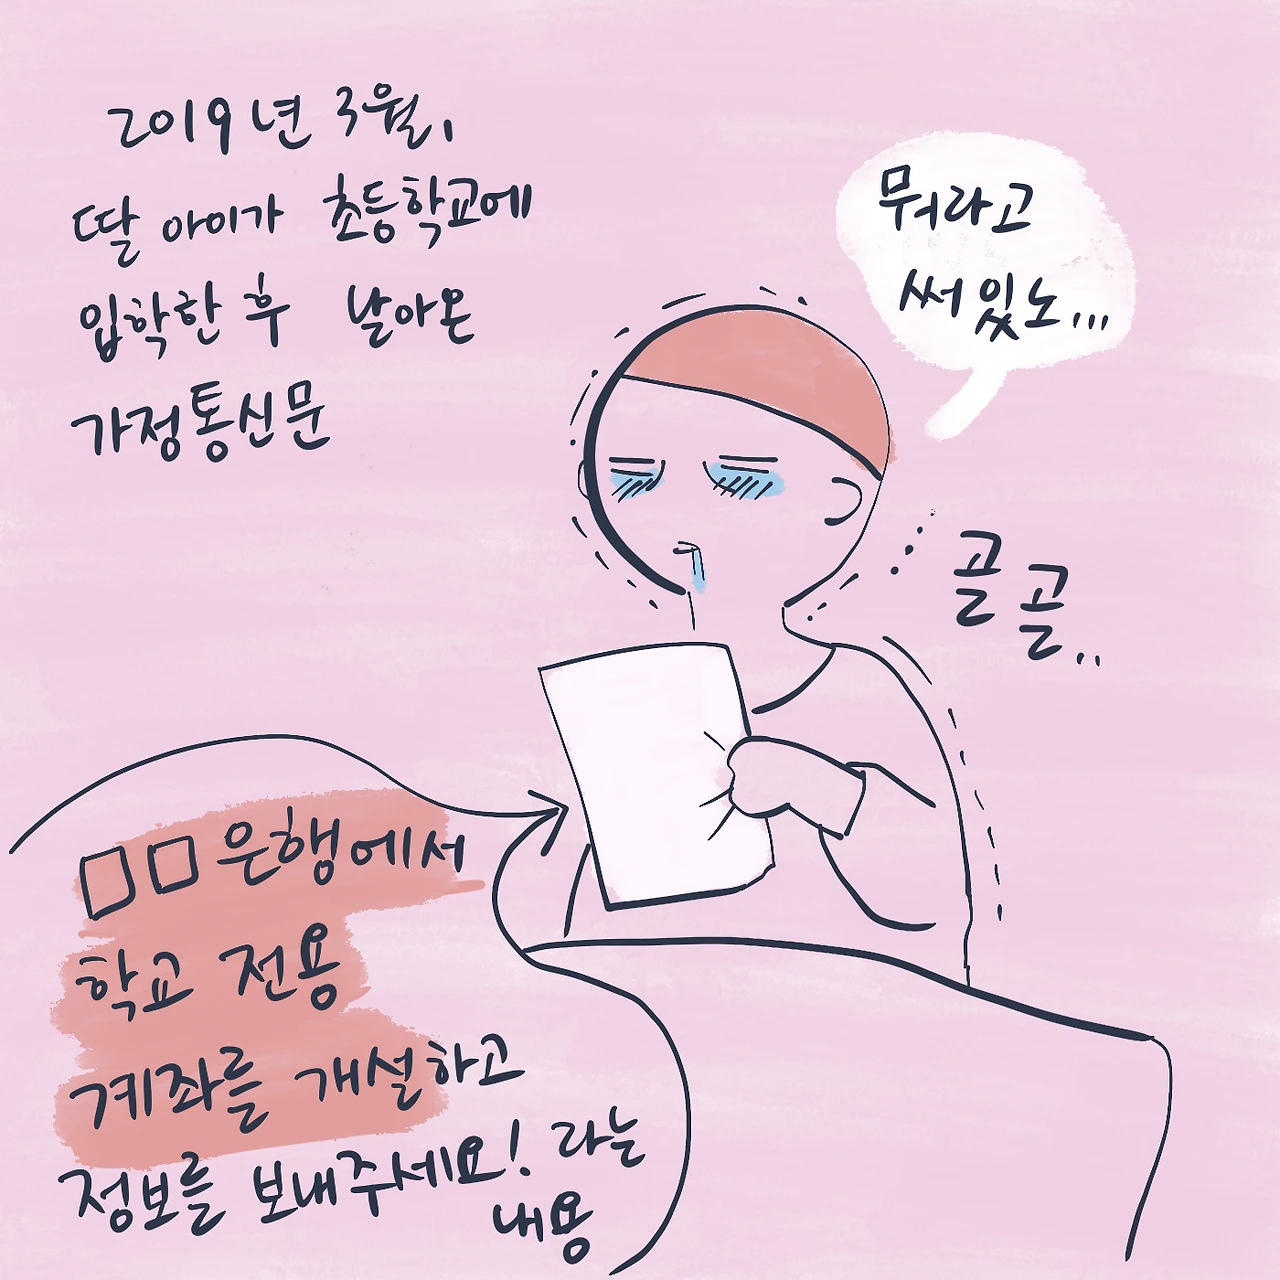 2019년 3월,
딸 아이가 초등학교에
입학한 후 날아온
가정통신문
뭐라고
써있노...
골골..
□□은행에서
학교 전용
계좌를 개설하고
정보를 보내주세요! 라는
내용